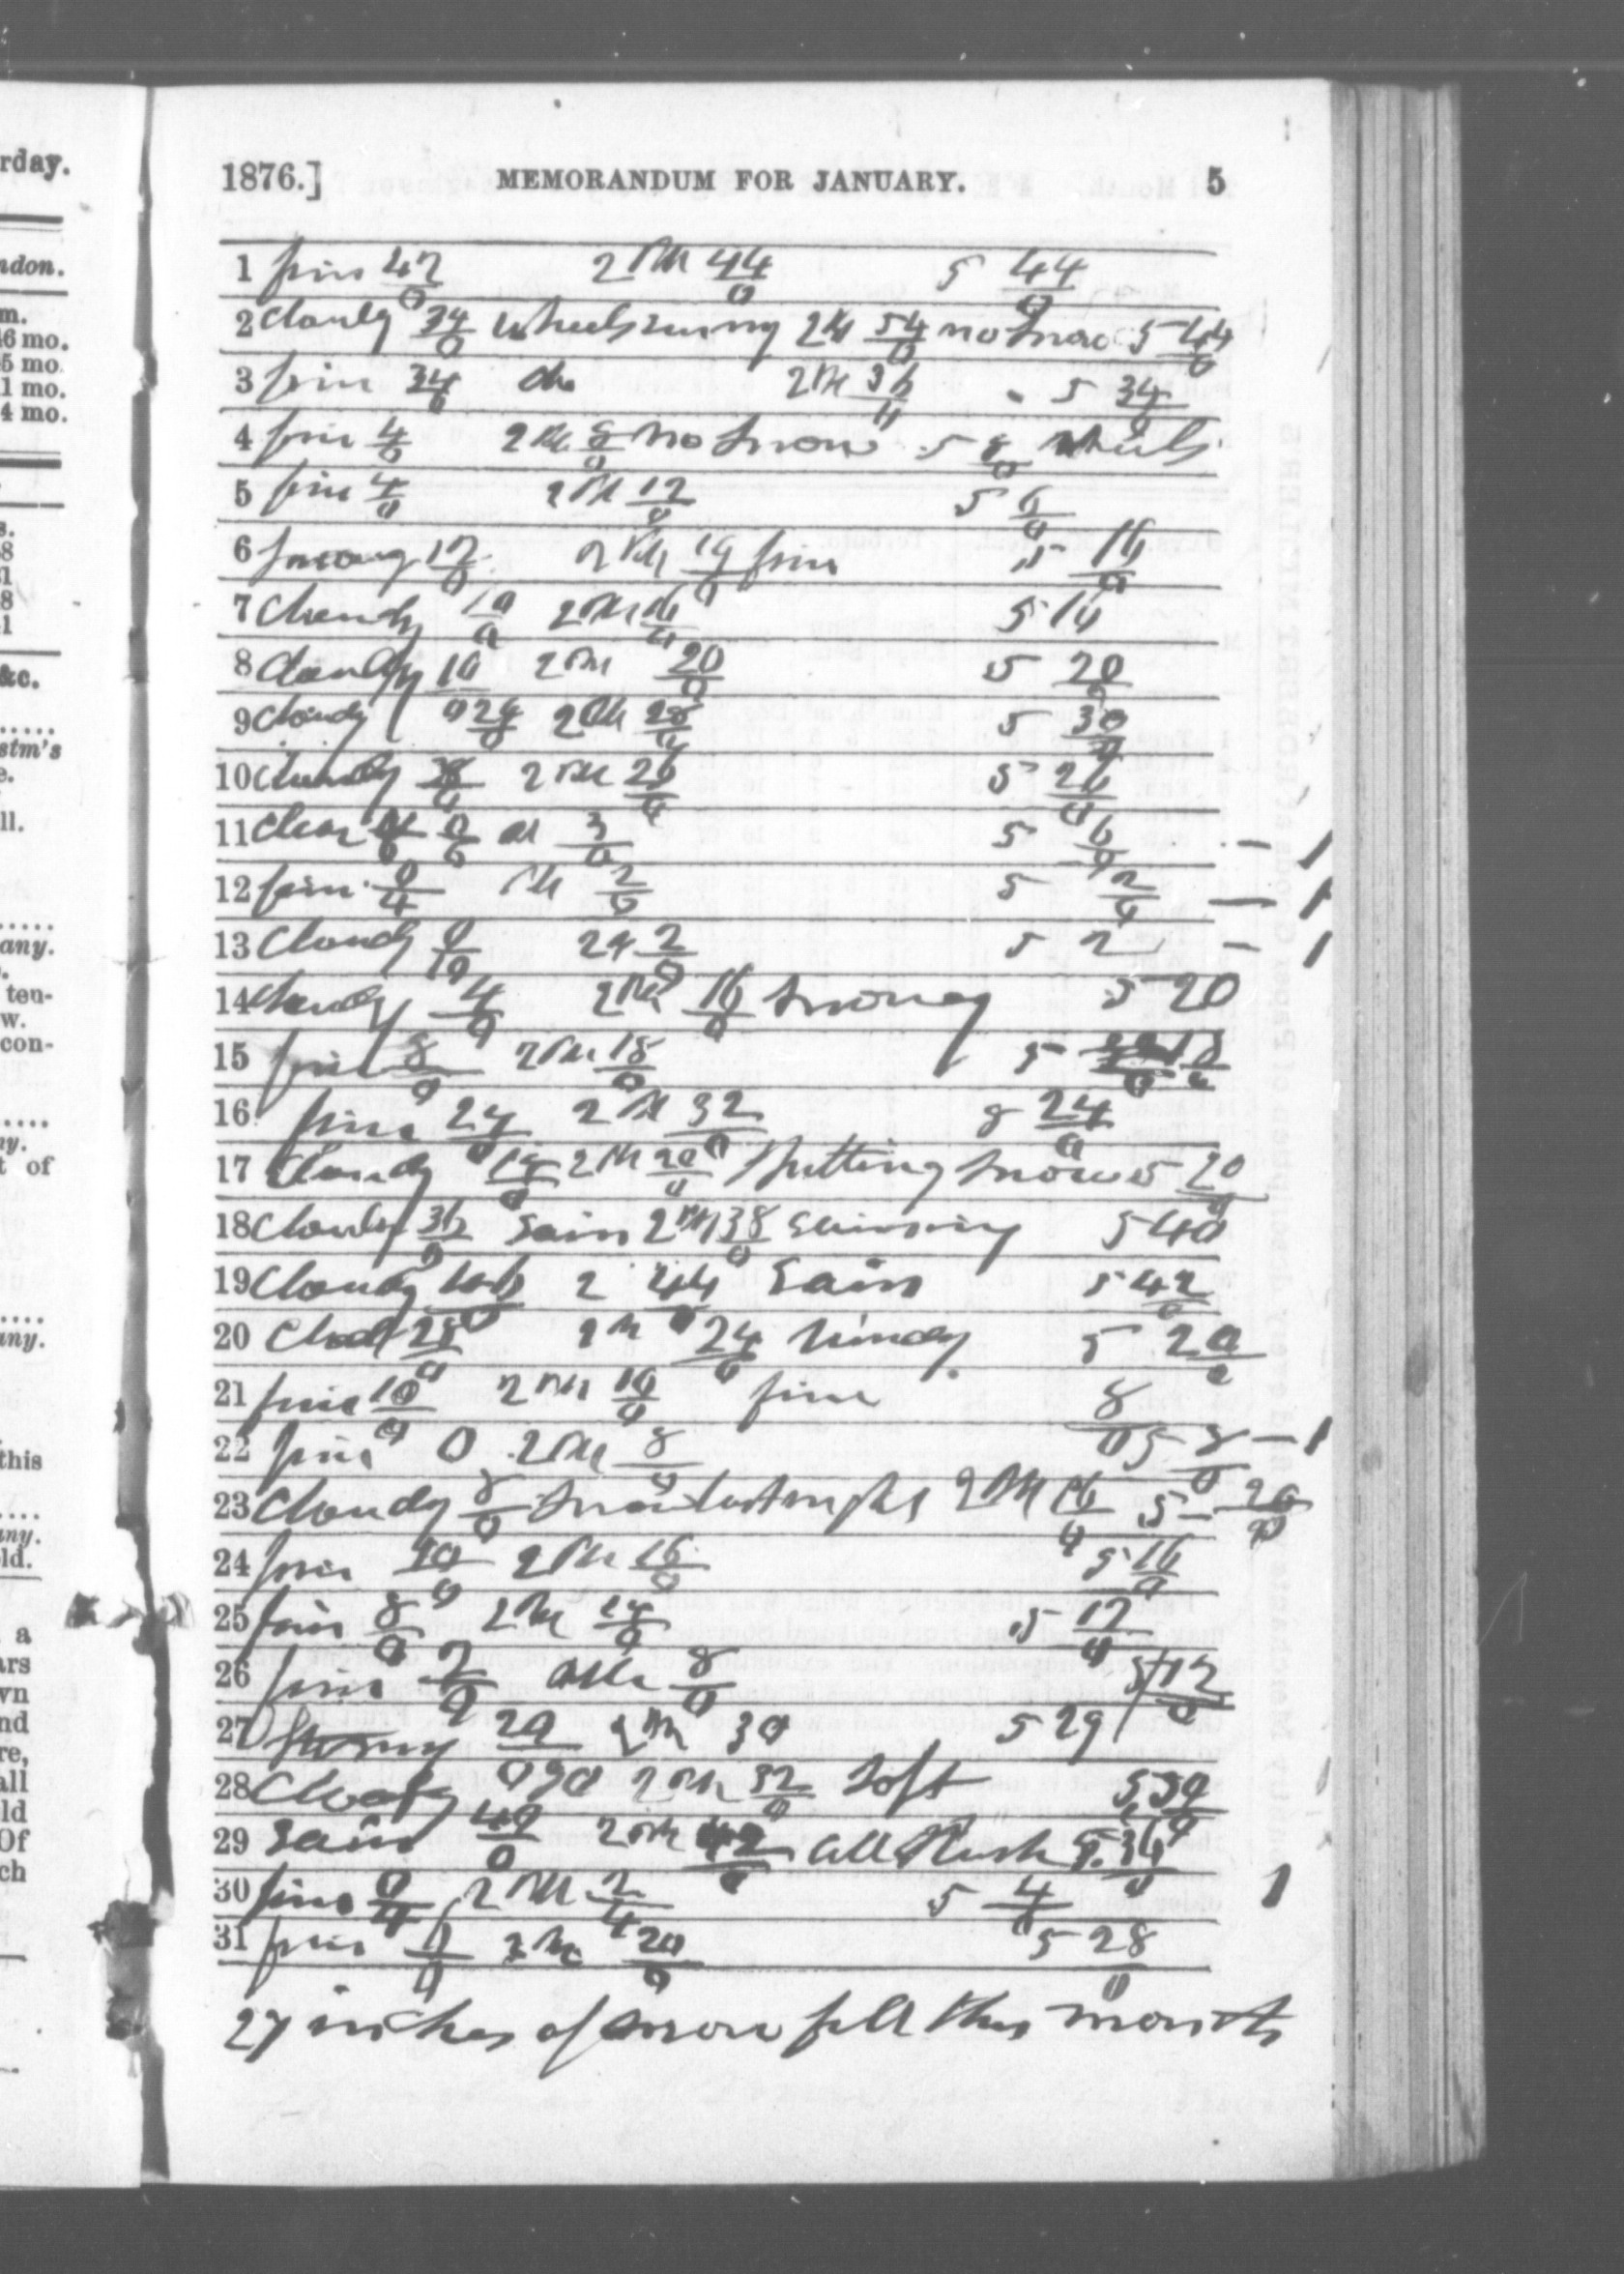 rday.
ndon.
m.
46 mo.
5 mo.
1 mo.
4 mo.
s.
8
1
8
1
&c.
.....
stm's
e.
ll.
.....
any.
ten-
w.
con-
....
ny.
t of
....
any.
this
....
any.
old.
a
ars
wn
nd
re,
all
ld
Of
ch
1876.] MEMORANDUM FOR JANUARY. 5
1 fine 42/0 2 PM 44/0 5 44/0
2 Cloudy 34/0 wheels 2 PM 54/0 no snow 5 44/0
3 fine 34/0 do 2 PM 36/0 5 34/0
4 fine 4/0 2 PM 8/0 no snow 5 8/0 wheels
5 fine 4/0 2 PM 12/0 5 6/0
6 Snowing 12/0 2 PM 19/0 fine 5 16/0
7 Cloudy 10/0 2 PM 16/0 5 14
8 Cloudy 10 2 PM 20/0 5 20
9 Cloudy 24/0 2 PM 28/0 5 30/0
10 Cloudy 2 PM 26/0 5 26/0
11 Clear 0/6 3/0 5 6/0 – 1
12 fine 0/4 PM 2/0 5 2/0 – 1
13 Cloudy 0/10 2 2/0 5 2 – 1
14 Cloudy 4/0 2 PM 16/0 Snowing 5 20
15 fine 8/0 2 PM 18/0 5 18
16 fine 24/0 2 PM 32/0 8 24/0
17 Cloudy 2 PM 20/0 Spitting Snow 5 20/0
18 Cloudy 36/0 Rain 2 PM 38/0 5 40
19 Cloudy 46/0 2 44/0 Rain 5 42/0
20 28/0 2 PM 24/0 windy 5 20/0
21 fine 10/0 2 PM 10/0 fine 8/0
22 fine 0 2 PM 8/0 5 8/0 – 1
23 Cloudy 8/0 Snow last night 2 PM 16/0 5 – 20/0
24 fine 10/0 2 PM 16/0 5 16/0
25 fine 8/0 2 PM 18/0 5 12/0
26 fine 2/0 8/0 5 12/0
27 Stormy 20/0 2 PM 30 5 29
28 Cloudy 30 2 PM 32/0 Soft 5 39/0
29 Rain 40/0 2 PM 42/0 all Slush 5 36/0
30 fine 0/4 2 PM 2/4 5 4/0 1
31 fine 0/0 2 PM 20/0 5 28/0
27 inches of snow fell this month